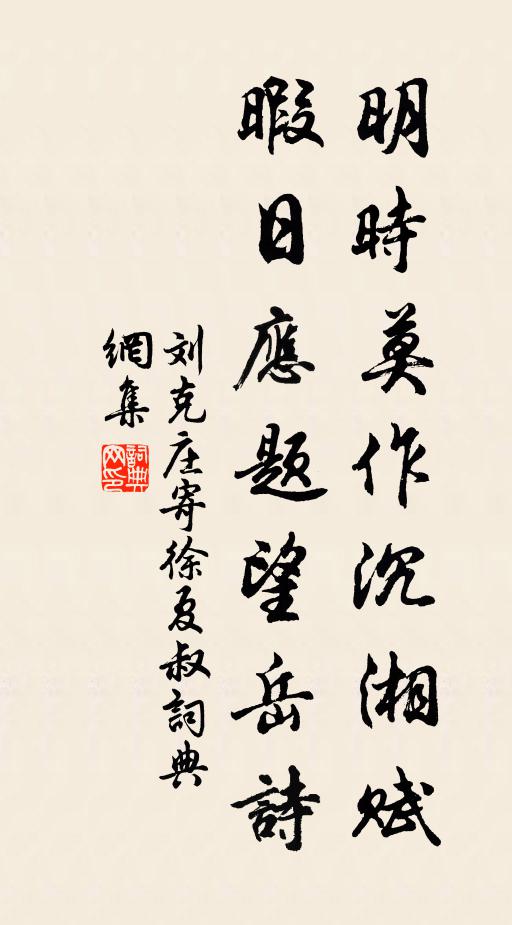 明時莫作沉湘赋
暇日應題望岳詩
刘克庄寄徐夏叔詞典
網集
詞典
网印